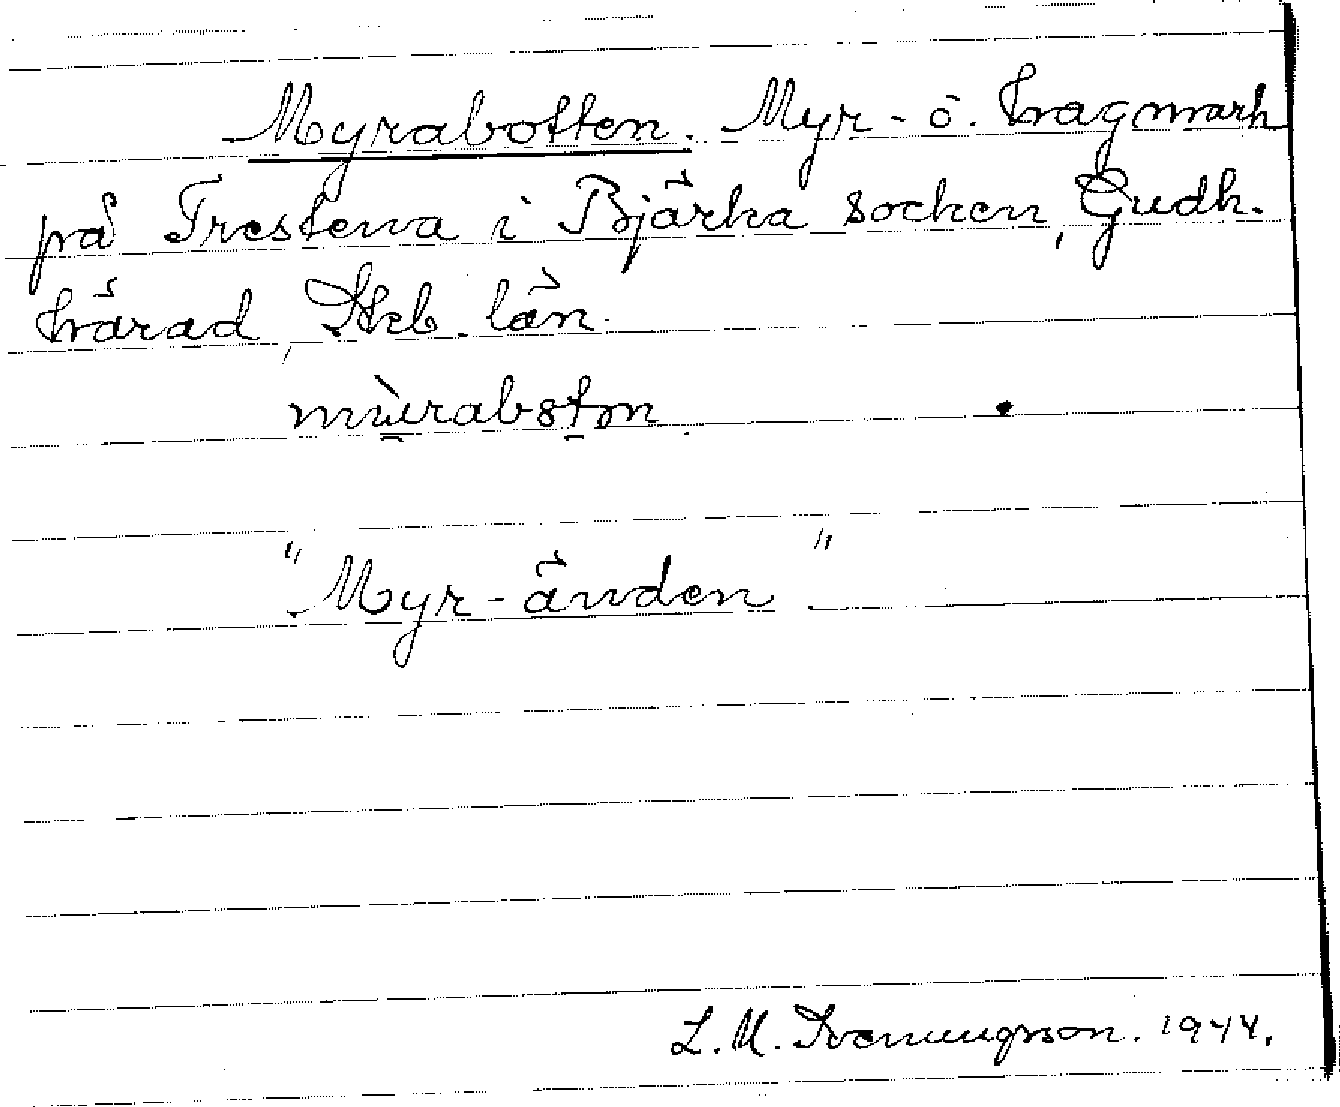 Myrabotten. Myr- o. hagmark
på Trestena i Bjärka socken, Gudh.
härad, Skb. län.
"Myr-änden"
L. M. Svenungsson. 1944.